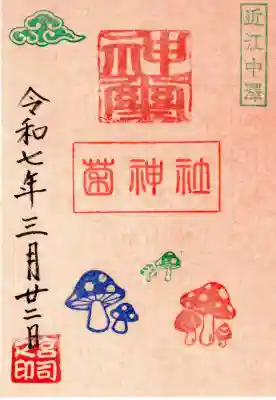 近江中澤
菌神社
令和七年三月廿二日
宮司之印